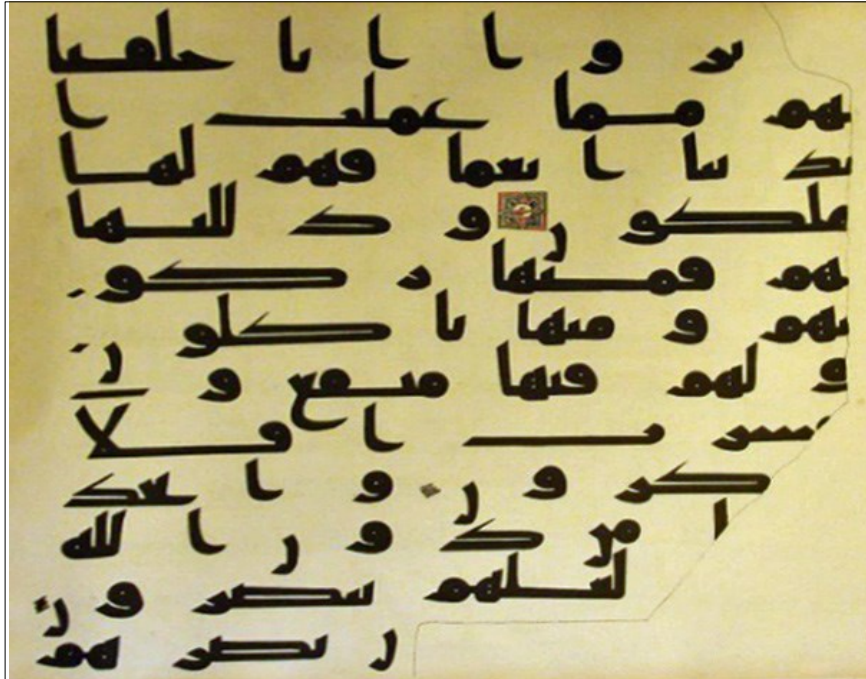 يروا انا خلقنا
لهم مما عملت ا
يدينا انعما فهم لها
ملكون وذللنها
لهم فمنها ركو
بهم ومنها ياكلون
ولهم فيها منفع و
مشرب افلا
يشكرون واتخذ
ا من دون الله
لعلهم ينصرون
ن نصرهم